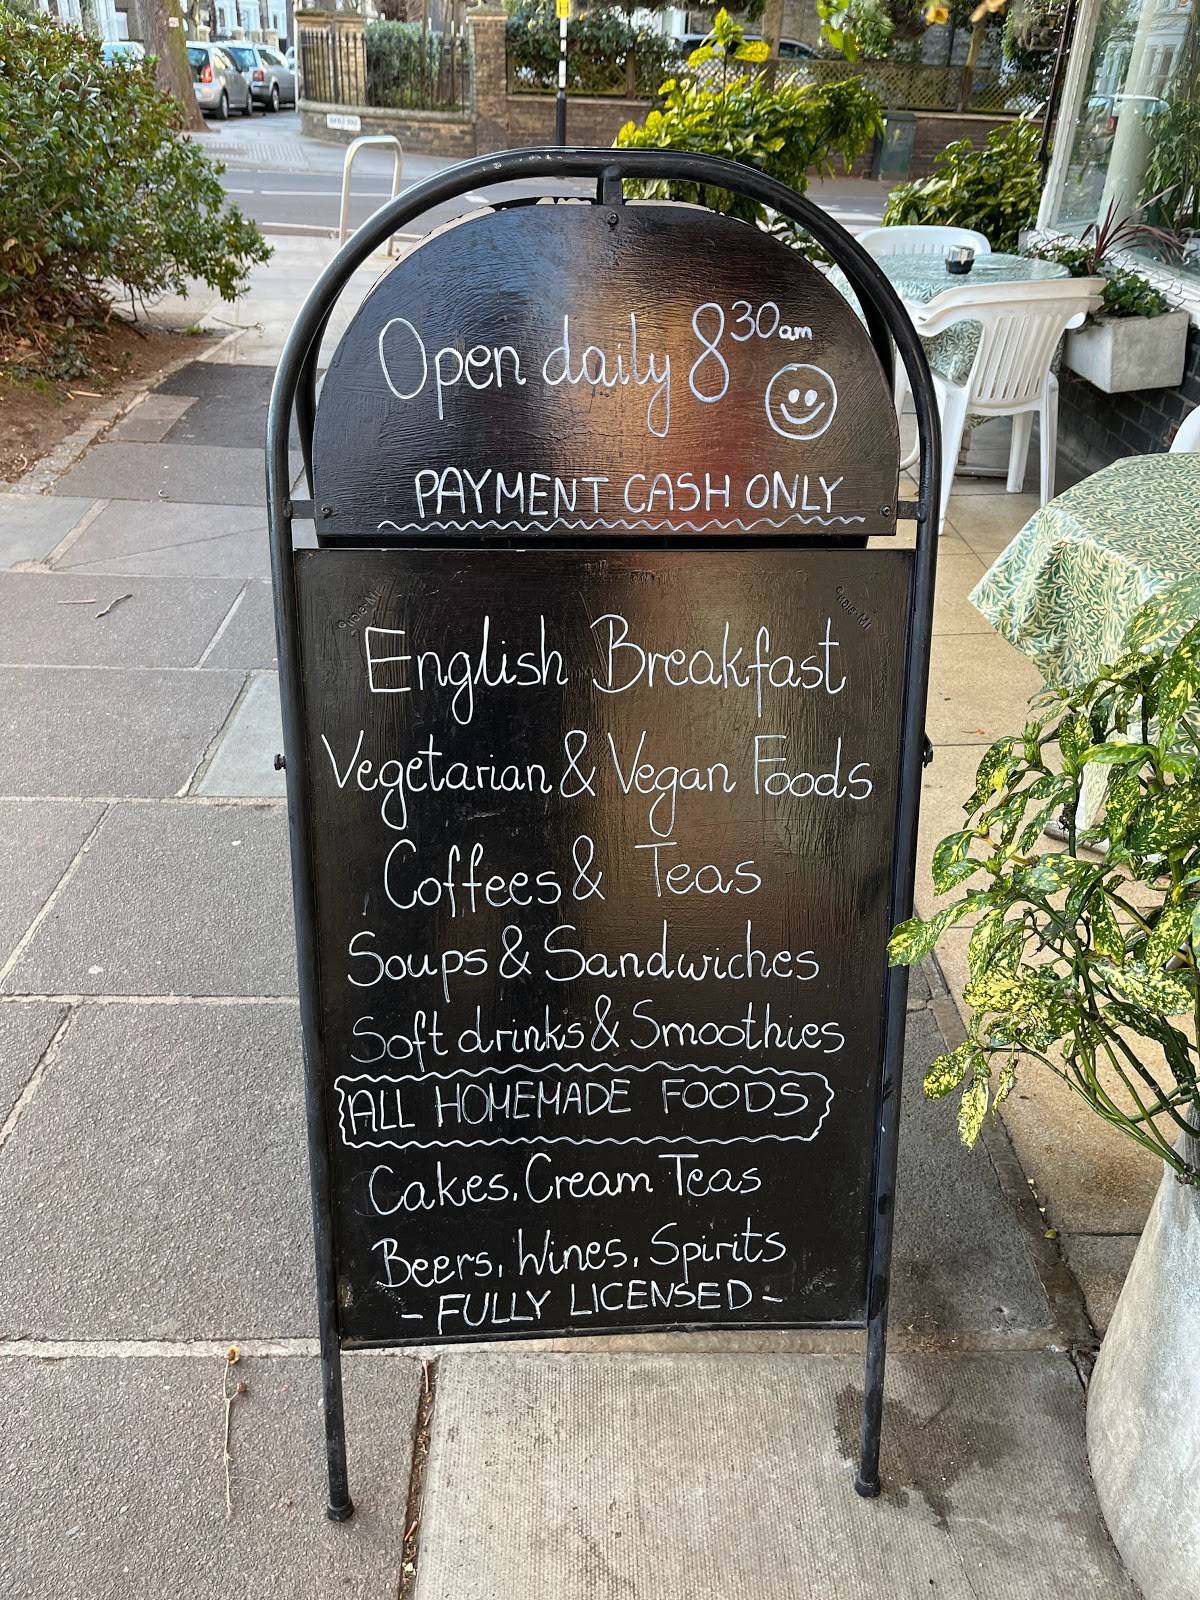 Open daily 8 30 am
PAYMENT CASH ONLY
English Breakfast
Vegetarian & Vegan Foods
Coffees & Teas
Soups & Sandwiches
Soft drinks & Smoothies
ALL HOMEMADE FOODS
Cakes, Cream Teas
Beers, Wines, Spirits
- FULLY LICENSED -